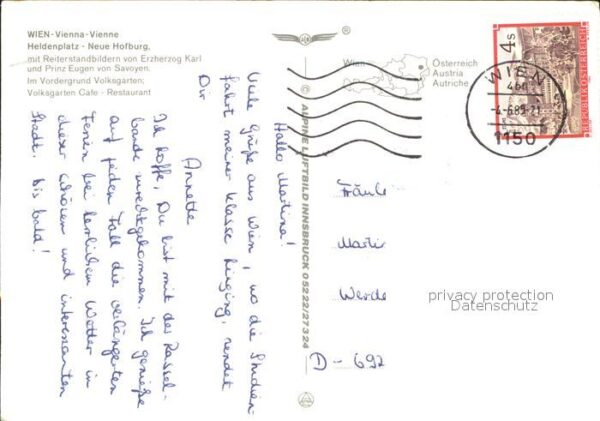 WIEN - Vienna - Vienne
Heldenplatz - Neue Hofburg,
mit Reiterstandbildern von Erzherzog Karl
und Prinz Eugen von Savoyen.
Im Vordergrund Volksgarten;
Volksgarten Cafe - Restaurant
®
Wien
Österreich
Austria
Autriche
4 S
REPUBLIK ÖSTERREICH
WIEN
-4.-6.89-21
1150
© ALPINE LUFTBILD INNSBRUCK 05222/27324
Hallo Martina!
Viele Grüße aus Wien, wo die Studien-
fahrt meiner Klasse hinging, sendet
Dir
Annette
Ich hoffe, Du bist mit der Kassel-
bande zurechtgekommen. Ich genieße
auf jeden Fall die verlängerten
Ferien bei herrlichem Wetter in
dieser schönen und interessanten
Stadt. Bis bald!
Fräule
Martin
Werde
D - 692
privacy protection
Datenschutz